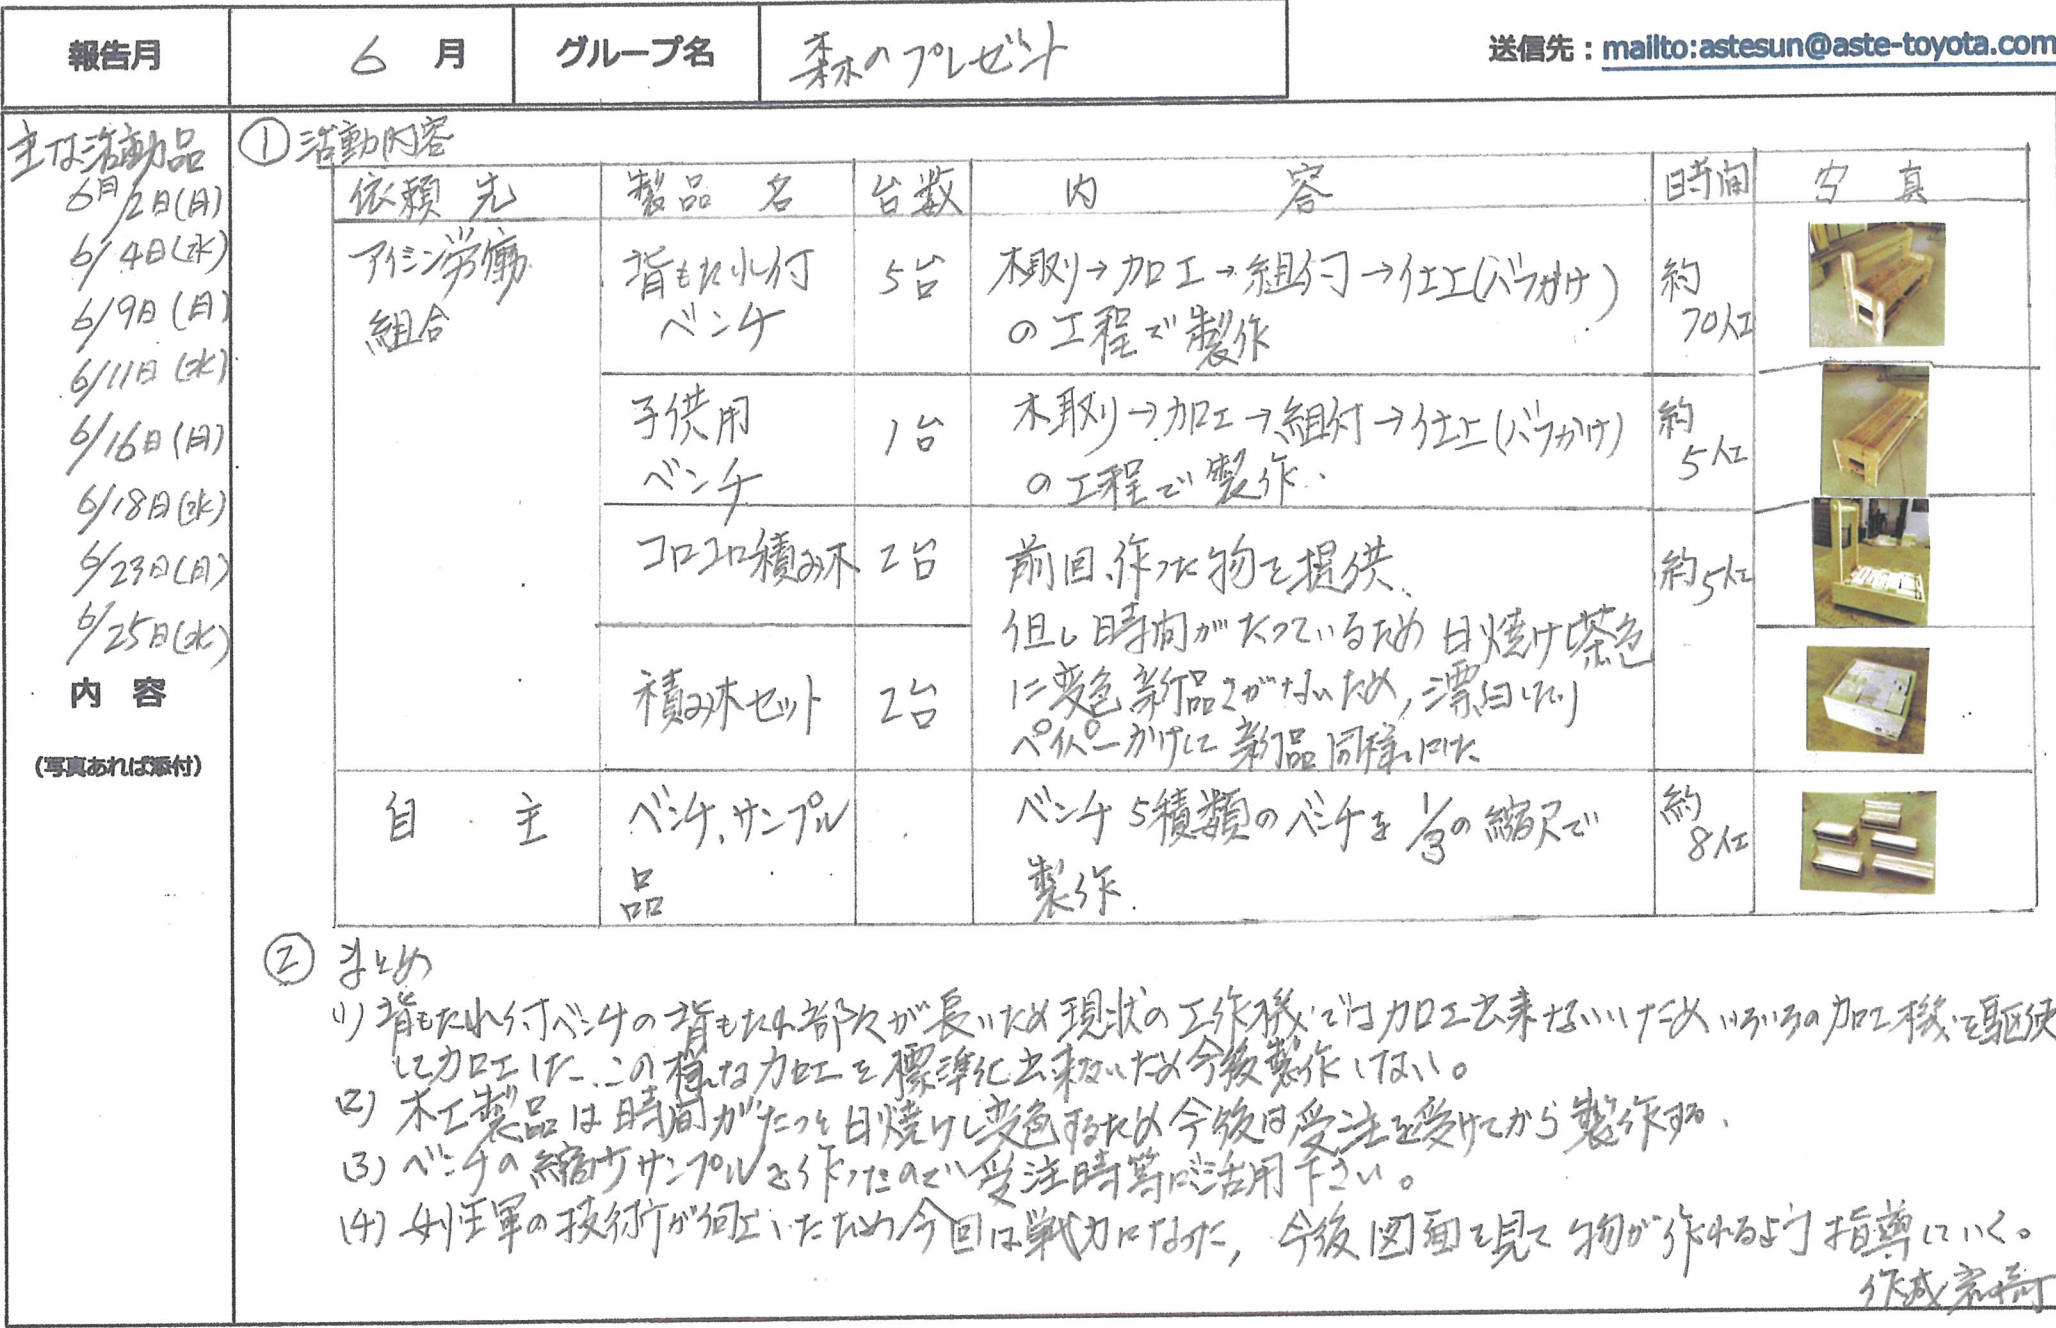 報告月
6 月
グループ名
森のプレゼント
送信先：mailto:astesun@aste-toyota.com
主な活動品
6月/2日(月)
6/4日(水)
6/9日(月)
6/11日(水)
6/16日(月)
6/18日(水)
6/23日(月)
6/25日(水)
内 容
(写真あれば添付)
① 活動内容
依頼先 製品名 台数 内容 時間 写真
アイシン労働
組合
背もたれ付
ベンチ
5台
木取り→加工→組付→仕上(バラかけ)
の工程で製作
約
70人工
子供用
ベンチ
1台
木取り→加工→組付→仕上(バラかけ)
の工程で製作.
約
5人工
コロコロ積み木
2台
前回、作った物を提供.
但し時間がたっているため日焼けし茶色
に変色 新品さがないため,漂白したり
ペイパーかけして新品同様にした
約5人工
積み木セット
2台
自 主
ベンチ、サンプル
品
ベンチ5積類のベンチを1/3の縮尺で
製作.
約
8人工
② まとめ
(1) 背もたれ付ベンチの背もたれ部分が長いため現状の工作機ではカロエ出来ないいためいろいろの加工機を駆使
して加工した、この様な加工を標準化出来ないため今後製作しない。
(2) 木工製品は時間がたつと日焼けし変色するため今後は受注を受けてから製作する.
(3) ベンチの縮ササンプルを作ったので受注時等に活用下さい。
(4) の技術が向上したため今回は戦力になった, 今後図面を見て物が作れるよう指導していく。
作成